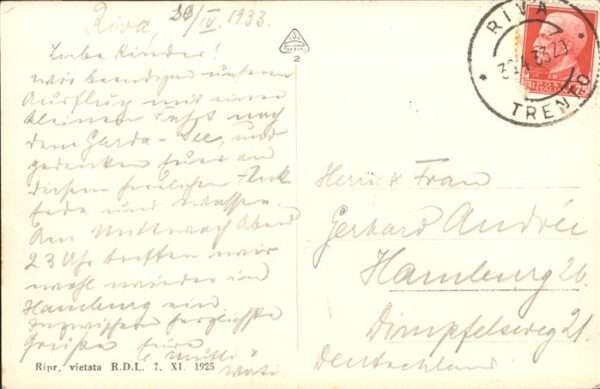 Riva, 30/IV. 1933.
Liebe Kinder!
wir beendigen unseren
Ausflug mit einer
kleinen nach
dem Garda-See, und
gedenken Euer an
diesem herrlichen
und Wasser.
Am Mittwoch Abend
23 Uhr treffen wir
wohl wieder in
Hamburg ein
Inzwischen herzlichste
Grüße Eure
Mutti
2
RIVA
30.4.33.21
TRENTO
Herrn & Frau
Gerhard Andrée
Hamburg 26.
Dimpfelsweg 21.
Deutschland.
Ripr. vietata R.D.L. 7. XI. 1925